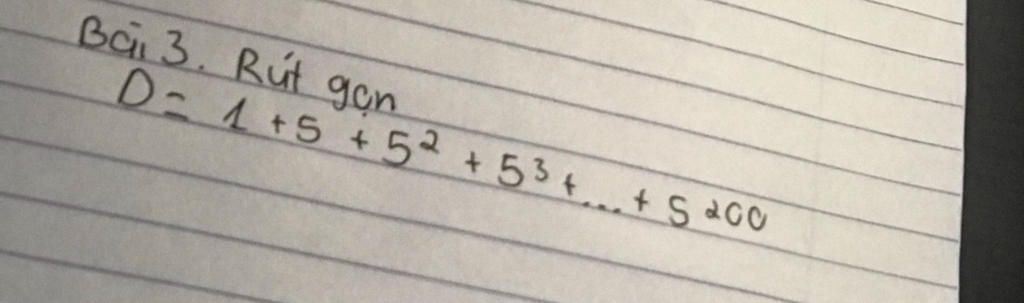 Bài 3. Rút gọn
D = 1 + 5 + 5² + 5³ + ... + 5²⁰⁰